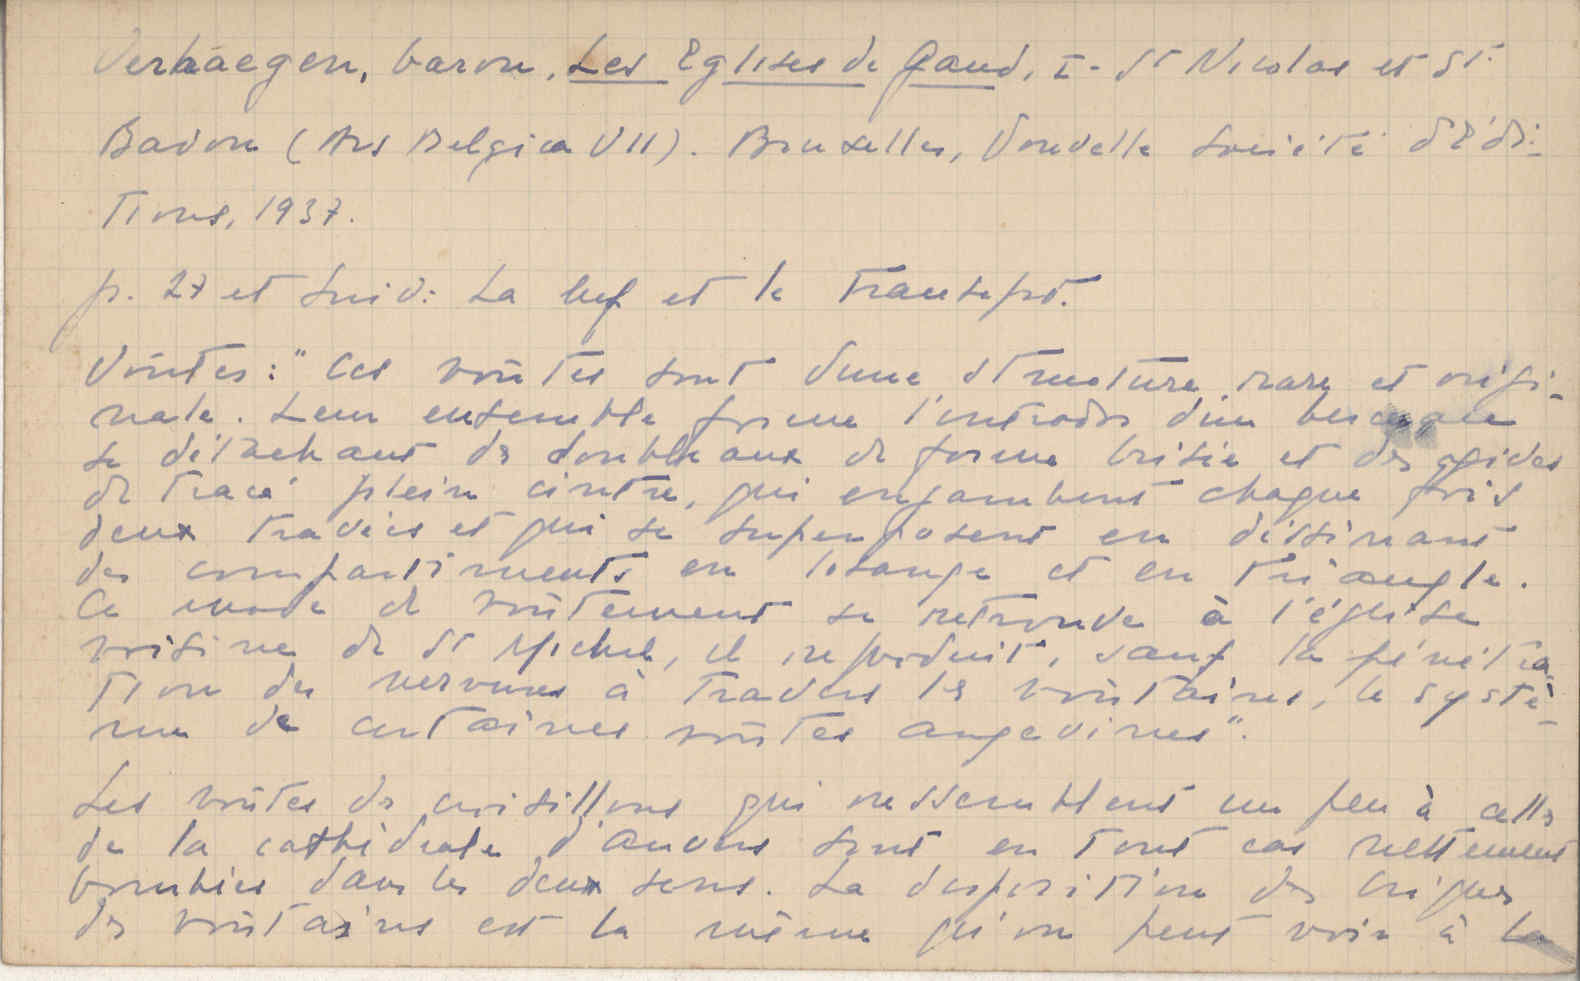 Verhaegen, baron, Les Eglises de Gand, I - St Nicolas et St.
Bavon (Ars Belgica VII). Bruxelles, Nouvelle Société d'Edi-
tions, 1937.
p. 27 et suiv: La nef et le transept.
Voûtes: "Ces voûtes sont d'une structure rare et origi-
nale. Leur ensemble forme l'intrados d'un berceau
se détachant de doubleaux de forme brisée et des ogives
de tracé plein cintre, qui enjambent chaque fois
deux travées et qui se superposent en dessinant
des compartiments en losange et en triangle.
Ce mode de voûtement se retrouve à l'église
voisine de St Michel, il reproduit, sauf la pénétra-
tion des nervures à travers les voûtaines, le systè-
me de certaines voûtes angevines".
Les voûtes de croisillons qui ressemblent un peu à celles
de la cathédrale d'Anvers sont en tout cas nettement
bombées dans les deux sens. La disposition des briques
des voûtains est la même qu'on peut voir à la